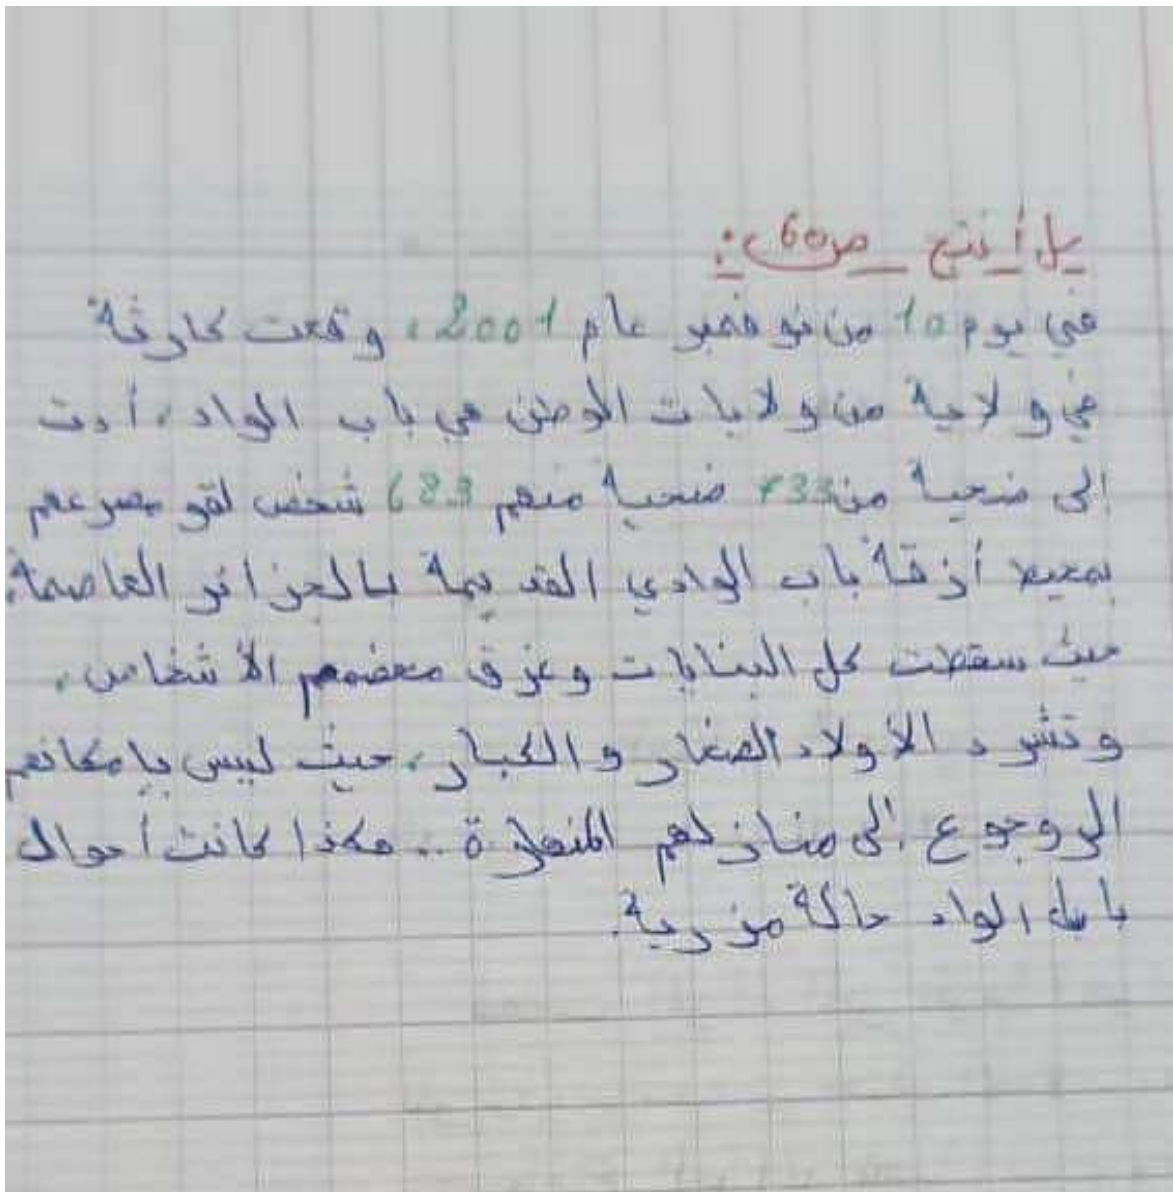 حل أنتج ص 60:
في يوم 10 من نوفمبر عام 2001، وقعت كارثة
في ولاية من ولايات الوطن هي باب الواد، أدت
إلى ضحية من 733 ضحية منهم 683 شخص لقو مصرعهم
بمحيط أزقة باب الوادي القديمة بالجزائر العاصمة،
حيث سقطت كل البنايات وغرق معضمهم الأشخاص،
وتشرد الأولاد الصغار والكبار، حيث ليس بإمكانهم
الرجوع إلى منازلهم المنهارة .. هكذا كانت أحوال
باب الواد حالة مزرية.